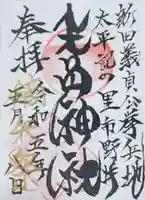 新田義貞公挙兵地
太平記の里市野井
生品神社
奉拝
令和五年
五月
日